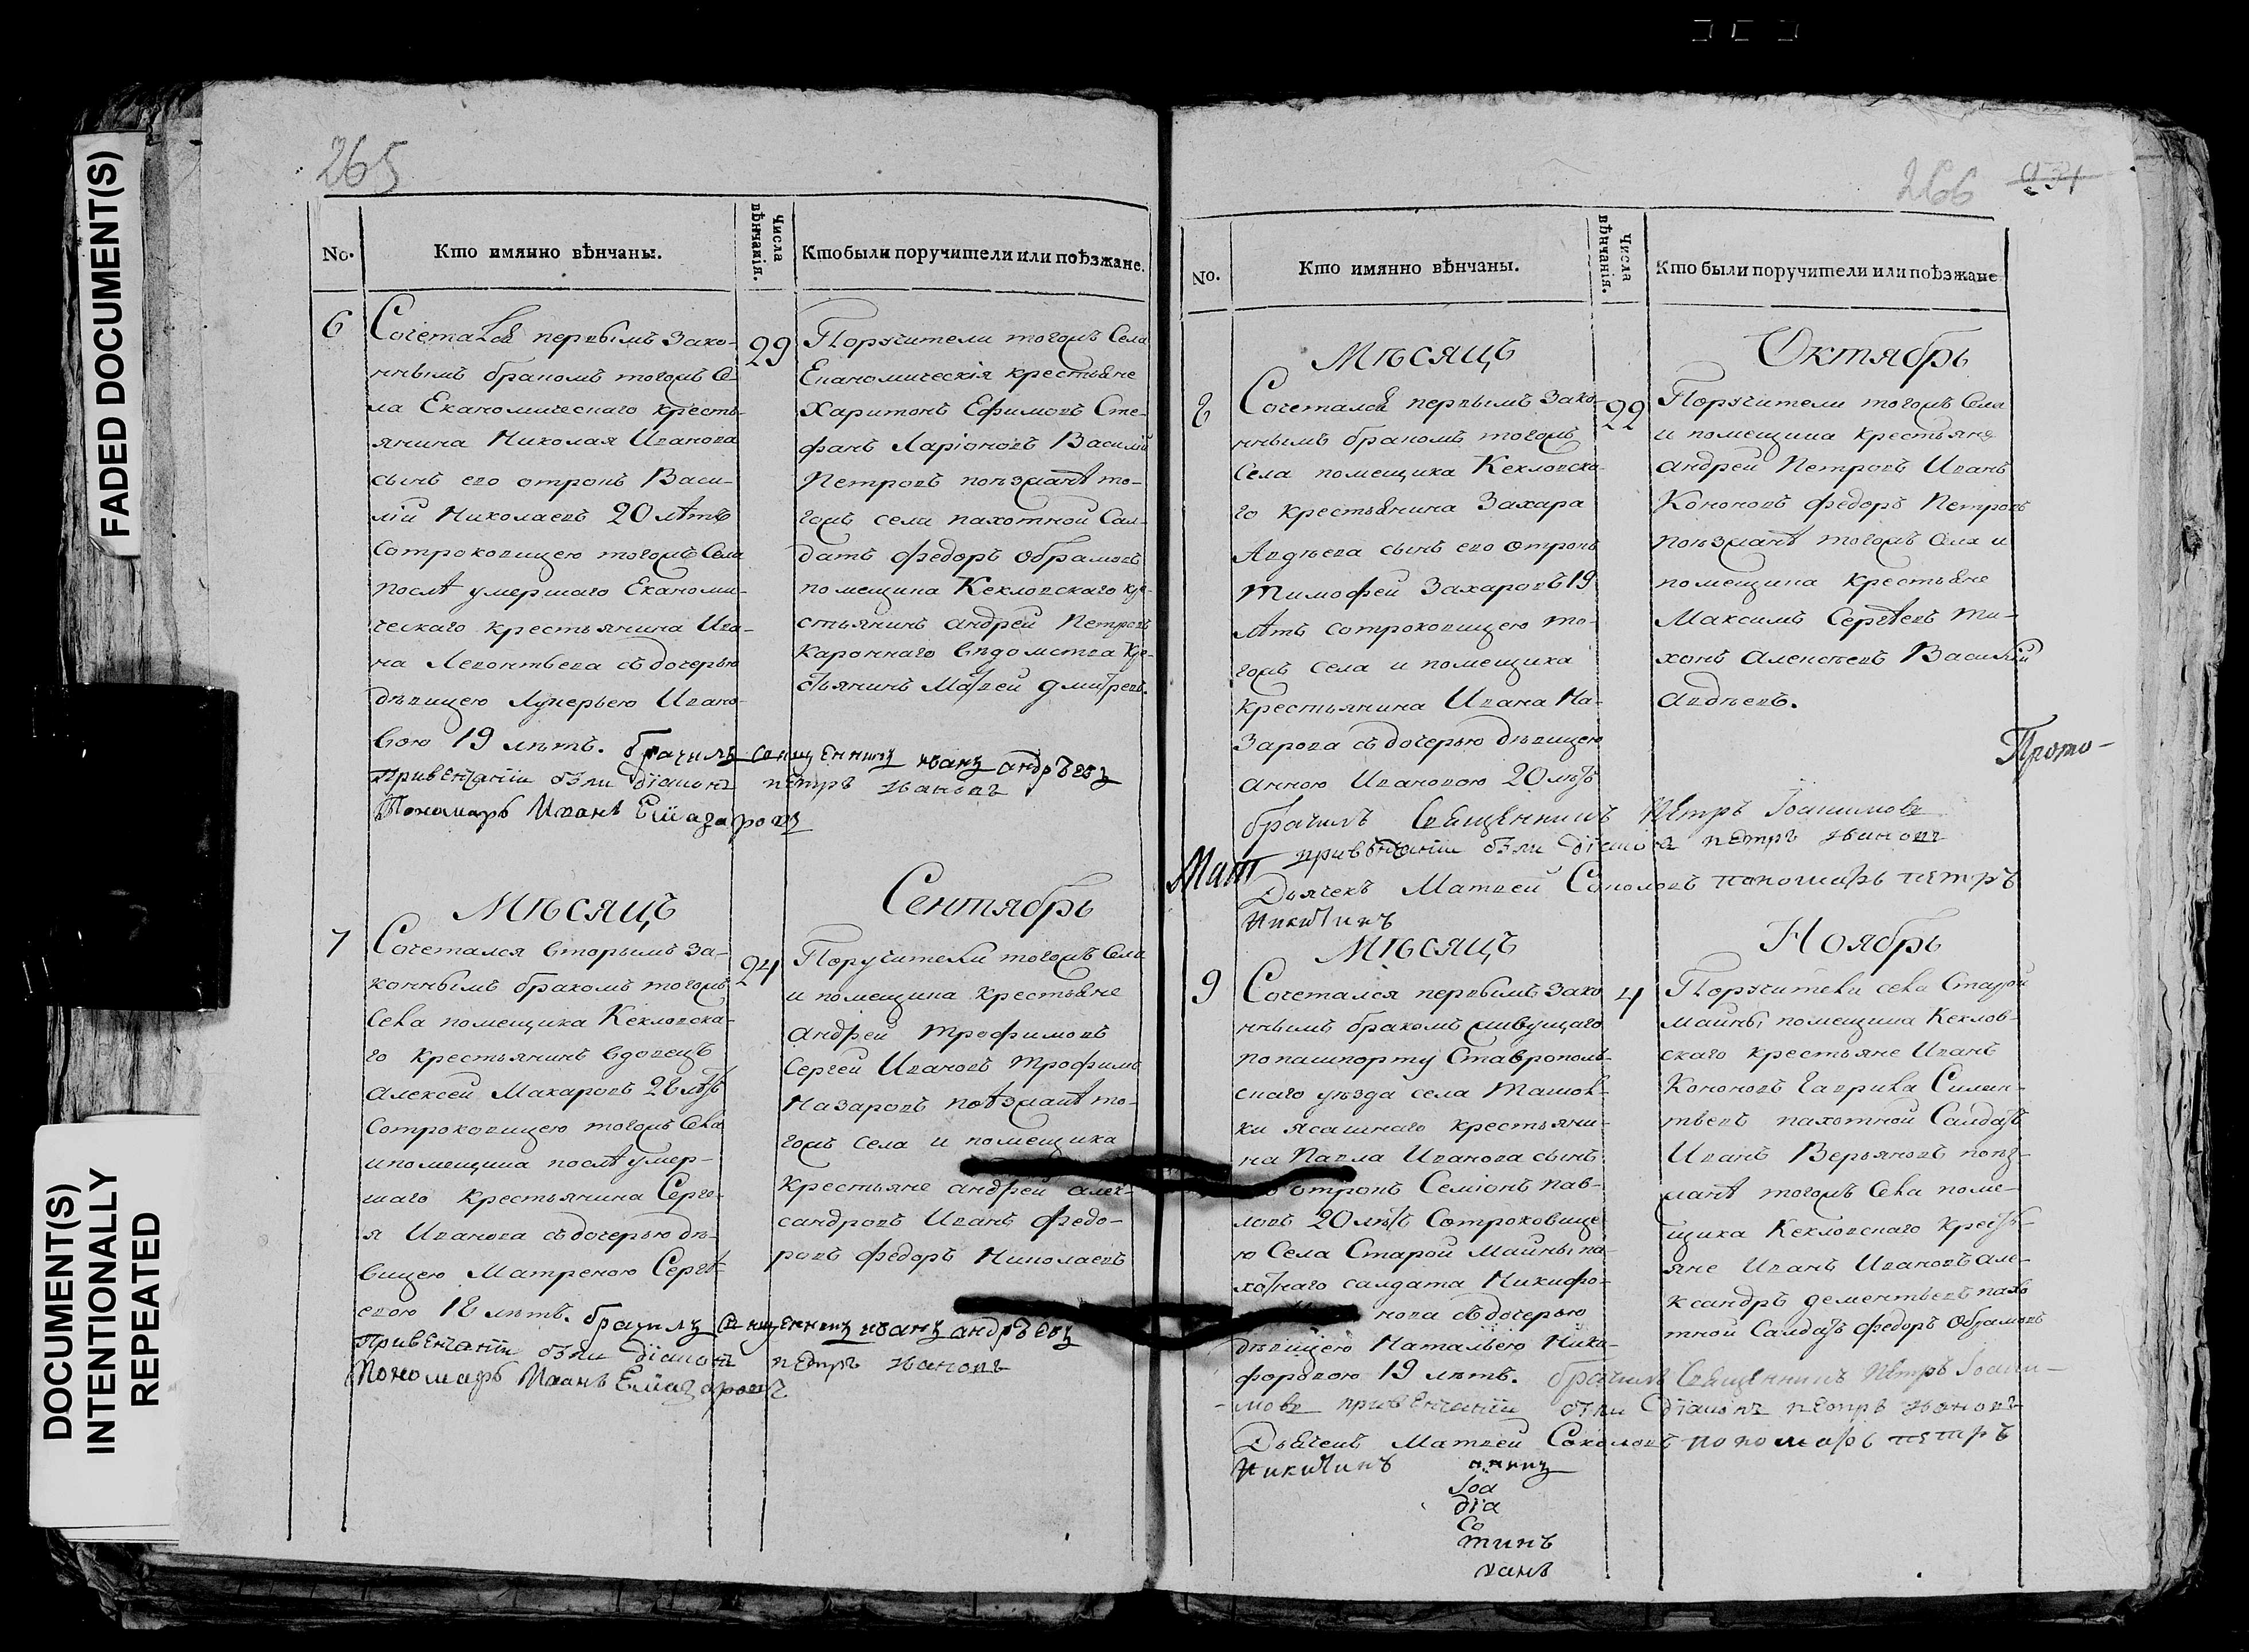 FADED DOCUMENT(S)
DOCUMENT(S)
INTENTIONALLY
REPEATED
265
No.
Кто имянно вѣнчаны.
Числа
вѣнчанія.
Кто были поручители или поѣзжане.
6
Сочетался первымъ зако-
ннымъ бракомъ тогожъ Се
ла Екакомическаго кресть-
янина Николая Иванова
сынъ его отрокъ Васи-
лій Николаевъ 20 лѣтъ
сотроковицею тогожъ Села
послѣ умершаго Екакоми-
ческаго крестьянина Ива-
на Леонтьева съ дочерью
дѣвицею Лукерьею Ивано-
вою 19 лѣтъ. брачилъ священникъ иванъ андрѣевъ
при венчаніи были діаконъ пѣтръ ивановъ
Пономарь Иванъ Елиазаровъ
29
Поручители тогожъ Села
Екакомическія крестьяне
Харитонъ Ефимовъ Сте-
фанъ Ларіоновъ Василій
Петровъ поѣзжанѣ то-
гожъ села пахотной Сал-
датъ федоръ обрамовъ
помещика Кекловскаго кре-
стьянинъ андрей Петровъ
Каронного вѣдомства кре-
стьянинъ Матвей дмитревъ.
Мѣсяцъ
Сентябрь
7
Сочетался вторымъ за-
коннымъ бракомъ тогожъ
Села помещика Кекловска-
го крестьянинъ вдовецъ
алексей Макаровъ 28 лѣтъ
сотроковицею тогожъ Села
и помещика послѣ умер-
шаго крестьянина Серге-
я Иванова съ дочерью дѣ-
вицею Матреною Сергѣ-
евою 18 лѣтъ. брачилъ священникъ иванъ андрѣевъ
при венчаніи были діаконъ пѣтръ ивановъ
Пономарь Иванъ Елиазаровъ
24
Поручители тогожъ Села
и помещика крестьяне
андрей трофимовъ
Сергей Ивановъ трофимъ
Назаровъ поѣзжанѣ то-
гожъ села и помещика
крестьяне андрей алек-
сандровъ Иванъ федо-
ровъ федоръ Николаевъ
266
No.
Кто имянно вѣнчаны.
Числа
вѣнчанія.
Кто были поручители или поѣзжане
Мѣсяцъ
Октябрь
8
Сочетался первымъ зако-
ннымъ бракомъ тогожъ
Села помещика Кекловска-
го крестьянина Захара
Авдѣева сынъ его отрокъ
тимофей Захаровъ 19
лѣтъ сотроковицею то-
гожъ села и помещика
крестьянина Ивана На-
зарова съ дочерью дѣвицею
анною Ивановою 20 лѣтъ
брачилъ Священникъ Пѣтръ Іоакимовъ
при венчаніи были діаконъ пѣтръ ивановъ
Дьячекъ Матвей Соколовъ пономарь петръ
Никитинъ
Мат
22
Поручители тогожъ Села
и помещика крестьяне
андрей Петровъ Иванъ
Кононовъ федоръ Петровъ
поѣзжанѣ тогожъ Села и
помещика крестьяне
Максимъ Сергѣевъ ти-
хонъ алексѣевъ Василій
авдѣевъ.
Прото-
Мѣсяцъ
Ноябрь
9
Сочетался первымъ зако
ннымъ бракомъ живущаго
по пашпорту Ставрополь-
скаго уѣзда села ташол-
ки ясашнаго крестьяни-
на Павла Иванова сынъ
отрокъ Семіонъ пав-
ловъ 20 лѣтъ Сотроковице
ю Села Старой Майны па-
хотнаго салдата Никифо-
нова съ дочерью
дѣвицею Натальею Ники-
форовою 19 лѣтъ. брачилъ Священникъ Пѣтръ Іоаки-
мовъ при венчаніи были діаконъ пѣтръ ивановъ
Дьячекъ Матвей Соколовъ пономарь петръ
Никитинъ
Іоа
діа
Со
тинъ
ванъ
4
Поручители села Старой
майны помещика Кеклов-
скаго крестьяне Иванъ
Кононовъ Гаврила Силан-
тьевъ пахотной Салдатъ
Иванъ Верьяновъ поѣз-
жанѣ тогожъ Села поме-
щика Кекловскаго кресть-
яне Иванъ Ивановъ але-
ксандръ дементьевъ пахо
тной Салдатъ федоръ обрамовъ